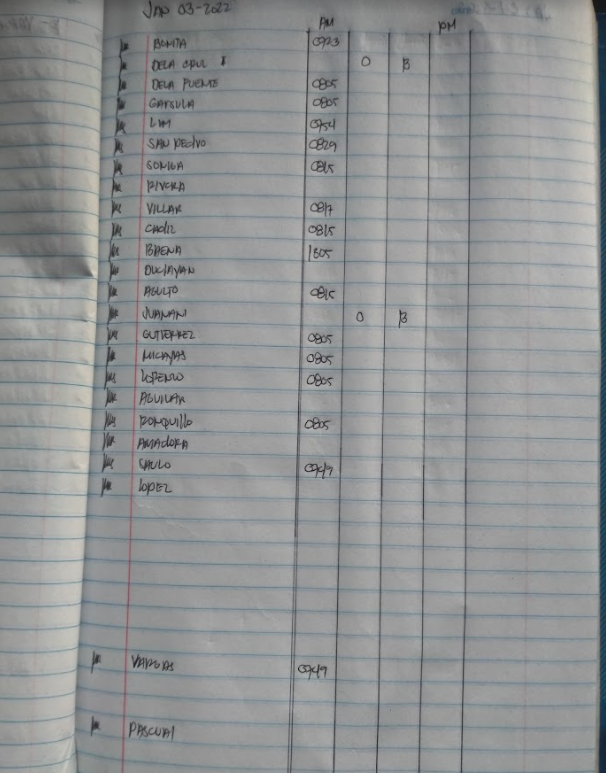 JAN 03-2022
AM PM
BONITA 0723
DELA CRUZ O B
DELA PUENTE 0805
GARSULA 0805
LIM 0754
SAN PEDRO 0829
SOMBA 0815
RIVERA
VILLAR 0817
CADIZ 0815
BAENA 1805
DUCLAYAN
AGULTO 0815
JUANANI O B
GUTIERREZ 0805
MICAYAS 0805
LORENZO 0805
AGUILAR
RONQUILLO 0805
AMADORA
SAULO 0749
LOPEZ
VARGAS 0749
PASCUAL